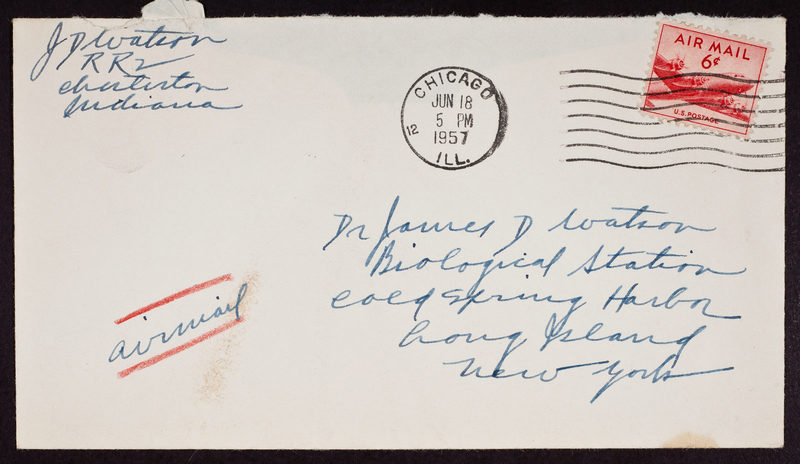 J D Watson
RR2
Chesterton
Indiana
CHICAGO
JUN 18
5 PM
1957
12
ILL.
AIR MAIL
6¢
U.S. POSTAGE
Dr James D Watson
Biological Station
Cold Spring Harbor
Long Island
New York
airmail